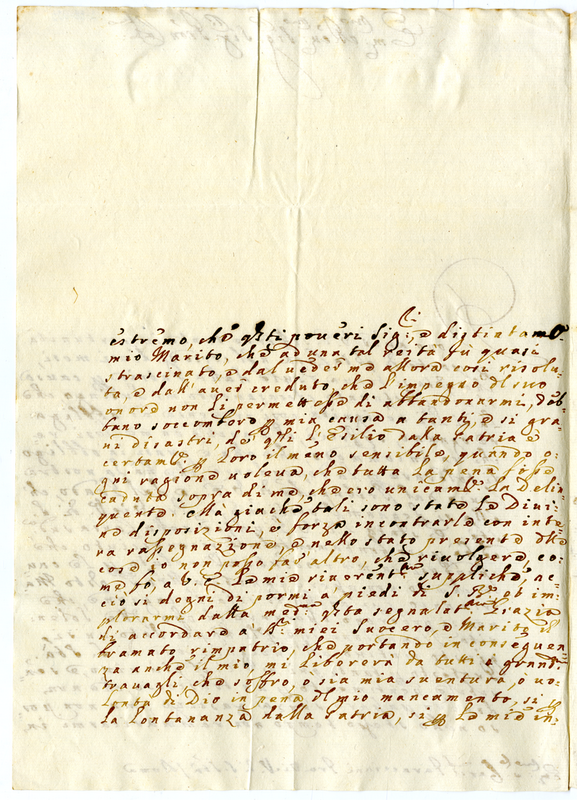 estremo, che q.sti poueri Sig:ri, e distintam.te
mio Marito, che ad una tal resta fù quasi
strascinato, e dal uedesme allora così risolu-
ta, e dall'auer creduto, che l'impegno del suo
onore non li permettesse di abbandonarmi, deb-
bano soccombere p mia causa a tanti, e si gra-
ui disastri, de' q.li l'Esilio dalla Patria è
certam.te p loro il meno sensibile, quando o-
gni ragione uoleua, che tutta la pena fosse
caduta sopra di me, che ero unicam.te la Delin-
quente. Ma giache tali sono state le Diui-
ne disposizioni, è forza incontrarle con inte-
ra rasegnazione, e nello stato presente delle
cose io non posso far altro, che riuolgere co-
me fò, a V. E. le mie riuerent.me suppliche, ac-
ciò si degni di pormi a piedi di S. R. ed im-
plorarmi dalla med.ma q.sta segnalat.ma grazia
di accordare a q.sti miei Suocero, e Marito il
bramato rimpatrio, che portando in conseguen
za anche il mio, mi libererà da tutti i grandi
trauagli, che soffro, ò sia mia suentura, ò uo-
lontà di Dio in pena del mio mancamento, si p
la lontananza dalla Patria, si p le mie in-